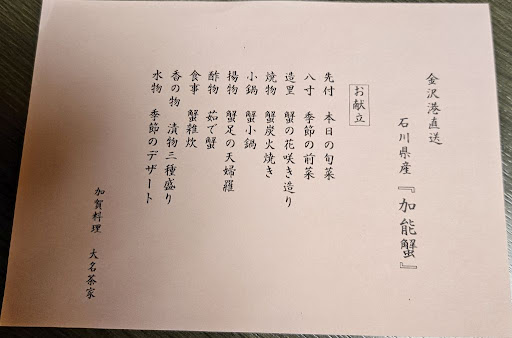 金沢港直送
石川県産『加能蟹』
お献立
先付 本日の旬菜
八寸 季節の前菜
造里 蟹の花咲き造り
焼物 蟹炭火焼き
小鍋 蟹小鍋
揚物 蟹足の天婦羅
酢物 茹で蟹
食事 蟹雑炊
香の物 漬物三種盛り
水物 季節のデザート
加賀料理 大名茶家